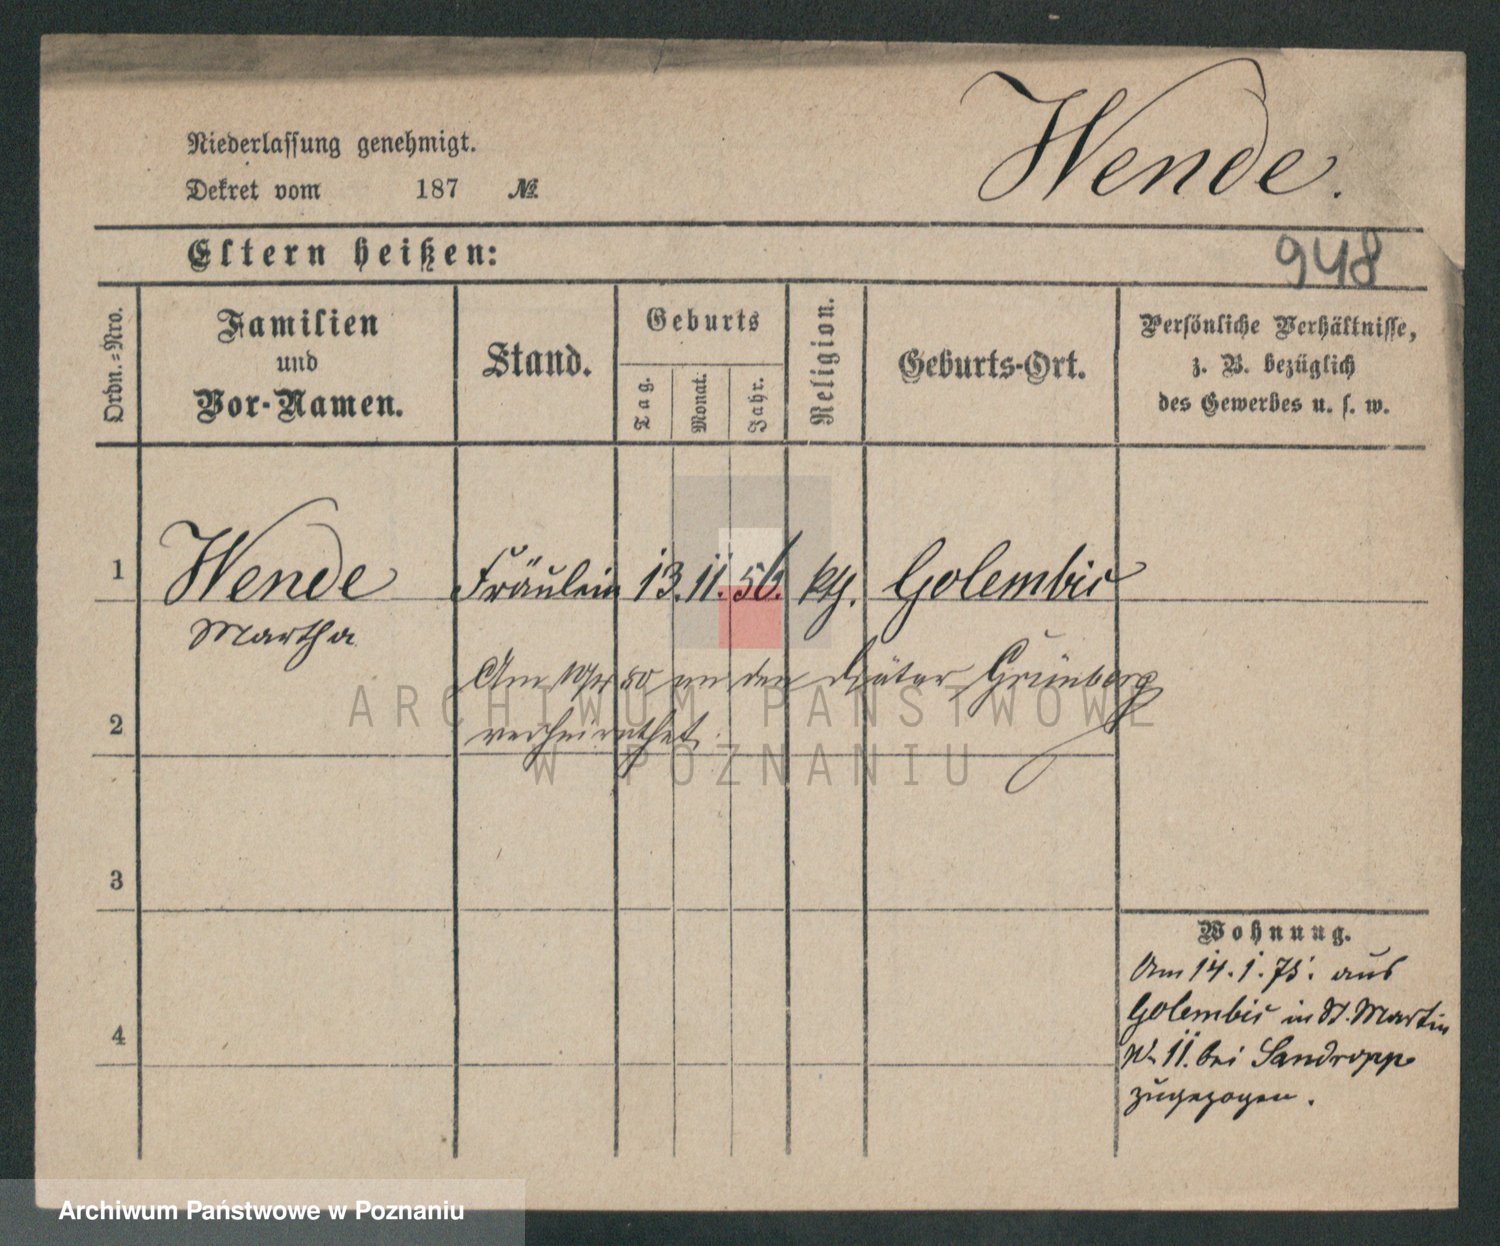 Wende.
Niederlassung genehmigt.
Dekret vom 187 №
Eltern heißen:
948
Ordn.=Nro.
Familien
und
Vor-Namen.
Stand.
Geburts
Tag.
Monat.
Jahr.
Religion.
Geburts-Ort.
Persönliche Verhältnisse,
z. B. bezüglich
des Gewerbes u. s. w.
1 Wende Fräulein 13. 11. 56. kth. Golembic
Martha
Am 80 an den Diätar Grünberg
2 verheirathet.
ARCHIWUM PAŃSTWOWE
W POZNANIU
3
4
Wohnung.
Am 14. 1. 75. aus
Golembic in St. Martin
No 11. bei Sandropp
zugezogen.
Archiwum Państwowe w Poznaniu